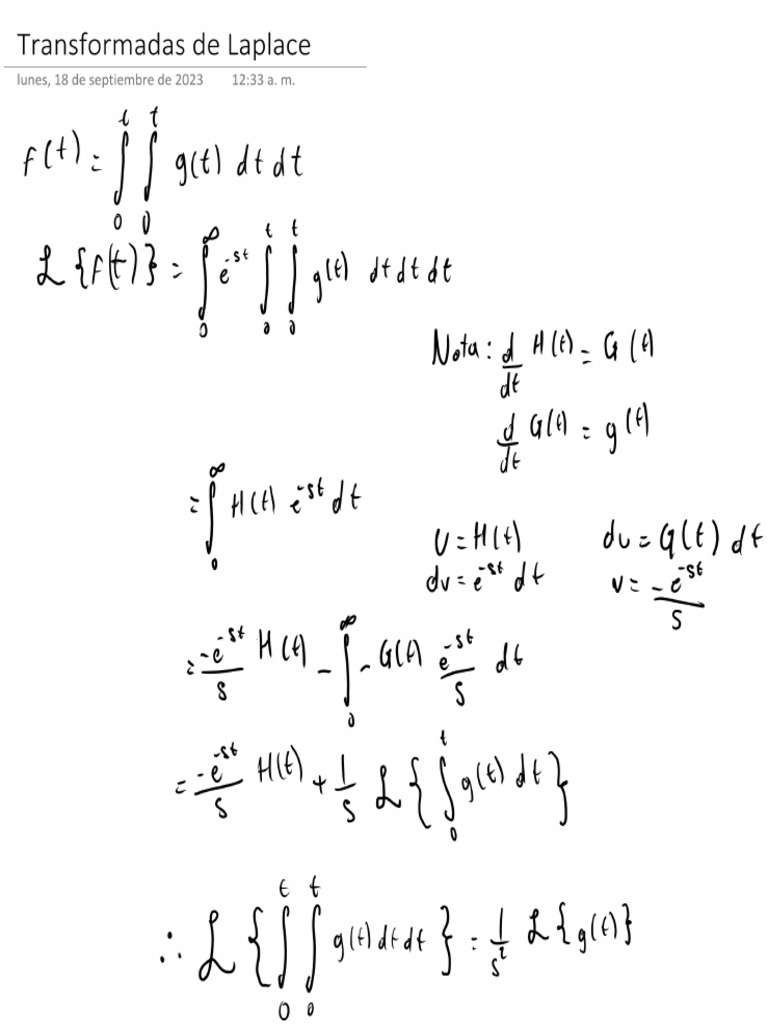 Transformadas de Laplace
lunes, 18 de septiembre de 2023 12:33 a. m.
f(t) = ∫₀ᵗ ∫₀ᵗ g(t) dt dt
ℒ{f(t)} = ∫₀^∞ e^{-st} ∫₀ᵗ ∫₀ᵗ g(t) dt dt dt
Nota: d/dt H(t) = G(t)
d/dt G(t) = g(t)
= ∫₀^∞ H(t) e^{-st} dt
U = H(t) du = G(t) dt
dv = e^{-st} dt v = -e^{-st}/s
= -e^{-st}/s H(t) - ∫₀^∞ - G(t) e^{-st}/s dt
= -e^{-st}/s H(t) + 1/s ℒ{∫₀ᵗ g(t) dt}
∴ ℒ{∫₀ᵗ ∫₀ᵗ g(t) dt dt} = 1/s² ℒ{g(t)}